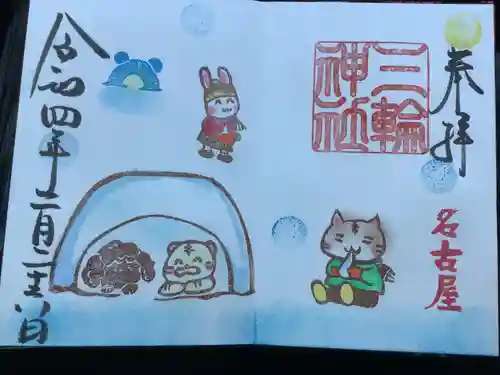 奉拝
三輪
神社
名古屋
令和四年十二月二十三日